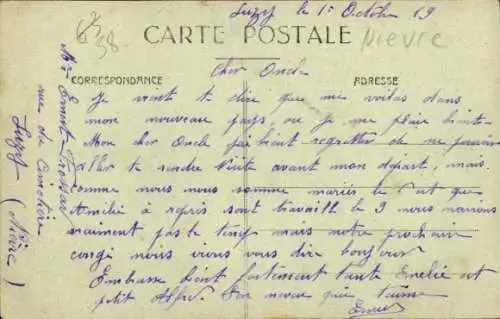 Luzy le 1r Octobre 19
6/3
38
CARTE POSTALE
Nièvre
CORRESPONDANCE
ADRESSE
Cher Oncle
Je vient te dire que me voilas dans
mon nouveau pays, ou je me plait bient
Mon cher Oncle bient regretter de ne pouvoir
aller te rendre visite avant mon départ, mais
comme nous nous somme mariés le 5 et que
Amélie à repris sont travaill le 9 nous n'avions
vraiment pas le temp mais notre prochain
congé nous irons vous dire bonjour
Embrasse bient fortement tante Emelie et
petit Alfred. Ton neveu que t'aime
Ernest
Mr Ernest
rue du Cimetière
Luzy (Nièvre)